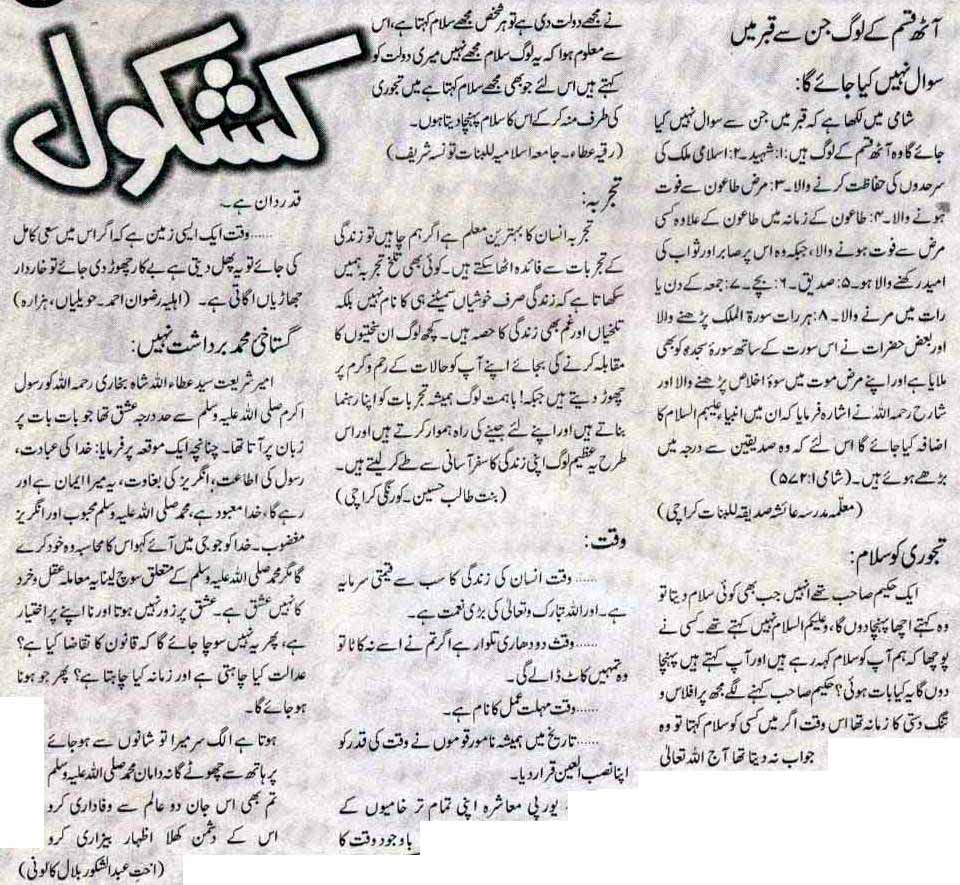 کشکول
آٹھ قسم کے لوگ جن سے قبر میں
سوال نہیں کیا جائے گا:
شامی میں لکھا ہے کہ قبر میں جن سے سوال نہیں کیا
جائے گا وہ آٹھ قسم کے لوگ ہیں: ۱: شہید۔ ۲: اسلامی ملک کی
سرحدوں کی حفاظت کرنے والا۔ ۳: مرض طاعون سے فوت
ہونے والا۔ ۴: طاعون کے زمانہ میں طاعون کے علاوہ کسی
مرض سے فوت ہونے والا، جبکہ وہ اس پر صابر اور ثواب کی
امید رکھنے والا ہو۔ ۵: صدیق۔ ۶: بچے۔ ۷: جمعہ کے دن یا
رات میں مرنے والا۔ ۸: ہر رات سورۃ الملک پڑھنے والا
اور بعض حضرات نے اس سورت کے ساتھ سورۂ سجدہ کو بھی
ملایا ہے اور اپنے مرض موت میں سوۂ اخلاص پڑھنے والا اور
شارح رحمہ اللہ نے اشارہ فرمایا کہ ان میں انبیاء علیہم السلام کا
اضافہ کیا جائے گا اس لئے کہ وہ صدیقین سے درجہ میں
بڑھے ہوئے ہیں۔ (شامی ۱: ۵۷۲)
(معلّمہ مدرسہ عائشہ صدیقہ للبنات کراچی)
تجوری کو سلام:
ایک حکیم صاحب تھے انہیں جب بھی کوئی سلام دیتا تو
وہ کہتے اچھا پہنچا دوں گا، وعلیکم السلام نہیں کہتے تھے۔ کسی نے
پوچھا کہ ہم آپ کو سلام کہہ رہے ہیں اور آپ کہتے ہیں پہنچا
دوں گا یہ کیا بات ہوئی؟ حکیم صاحب کہنے لگے مجھ پر افلاس و
تنگ دستی کا زمانہ تھا اس وقت اگر میں کسی کو سلام کہتا تو وہ
جواب نہ دیتا تھا آج اللہ تعالیٰ
نے مجھے دولت دی ہے تو ہر شخص مجھے سلام کہتا ہے، اس
سے معلوم ہوا کہ یہ لوگ سلام مجھے نہیں میری دولت کو
کہتے ہیں اس لئے جو بھی مجھے سلام کہتا ہے میں تجوری
کی طرف منہ کر کے اس کا سلام پہنچا دیتا ہوں۔
(رقیہ عطاء۔ جامعہ اسلامیہ للبنات تونسہ شریف)
تجربہ:
تجربہ انسان کا بہترین معلم ہے اگر ہم چاہیں تو زندگی
کے تجربات سے فائدہ اٹھا سکتے ہیں۔ کوئی بھی تلخ تجربہ ہمیں
سکھاتا ہے کہ زندگی صرف خوشیاں سمیٹنے ہی کا نام نہیں بلکہ
تلخیاں اور غم بھی زندگی کا حصہ ہیں۔ کچھ لوگ ان سختیوں کا
مقابلہ کرنے کی بجائے اپنے آپ کو حالات کے رحم و کرم پر
چھوڑ دیتے ہیں جبکہ! باہمت لوگ ہمیشہ تجربات کو اپنا رہنما
بناتے ہیں اور اپنے لئے جینے کی راہ ہموار کرتے ہیں اور اس
طرح یہ عظیم لوگ اپنی زندگی کا سفر آسانی سے طے کر لیتے ہیں۔
(بنت طالب حسین۔ کورنگی کراچی)
وقت:
...... وقت انسان کی زندگی کا سب سے قیمتی سرمایہ
ہے۔ اور اللہ تبارک وتعالیٰ کی بڑی نعمت ہے۔
......وقت دو دھاری تلوار ہے اگر تم نے اسے نہ کاٹا تو
وہ تمہیں کاٹ ڈالے گی۔
......وقت مہلت عمل کا نام ہے۔
......تاریخ میں ہمیشہ نامور قوموں نے وقت کی قدر کو
اپنا نصب العین قرار دیا۔
یورپی معاشرہ اپنی تمام تر خامیوں کے
باوجود وقت کا
قدردان ہے۔
......وقت ایک ایسی زمین ہے کہ اگر اس میں سعی کامل
کی جائے تو یہ پھل دیتی ہے بے کار چھوڑ دی جائے تو خاردار
جھاڑیاں اگاتی ہے۔ (اہلیہ رضوان احمد۔ حویلیاں، ہزارہ)
گستاخیٔ محمد برداشت نہیں:
امیر شریعت سید عطاء اللہ شاہ بخاری رحمہ اللہ کو رسول
اکرم صلی اللہ علیہ وسلم سے حد درجہ عشق تھا جو بات بات پر
زبان پر آتا تھا۔ چنانچہ ایک موقعہ پر فرمایا: خدا کی عبادت،
رسول کی اطاعت، انگریز کی بغاوت، یہ میرا ایمان ہے اور
رہے گا، خدا معبود ہے، محمد صلی اللہ علیہ وسلم محبوب اور انگریز
مغضوب۔ خدا کو جو جی میں آئے کہو اس کا محاسبہ وہ خود کرے
گا مگر محمد صلی اللہ علیہ وسلم کے متعلق سوچ لینا یہ معاملہ عقل و خرد
کا نہیں عشق ہے۔ عشق پر زور نہیں ہوتا اور نا اپنے پر اختیار
ہے، پھر یہ نہیں سوچا جائے گا کہ قانون کا تقاضا کیا ہے؟
عدالت کیا چاہتی ہے اور زمانہ کیا چاہتا ہے؟ پھر جو ہونا
ہو جائے گا۔
ہوتا ہے الگ سر میرا تو شانوں سے ہوجائے
پر ہاتھ سے چھوٹے گا نہ دامان محمد صلی اللہ علیہ وسلم
تم بھی اس جان دو عالم سے وفاداری کرو
اس کے دشمن کھلا اظہار بیزاری کرو
(اختِ عبدالشکور بلال کالونی)